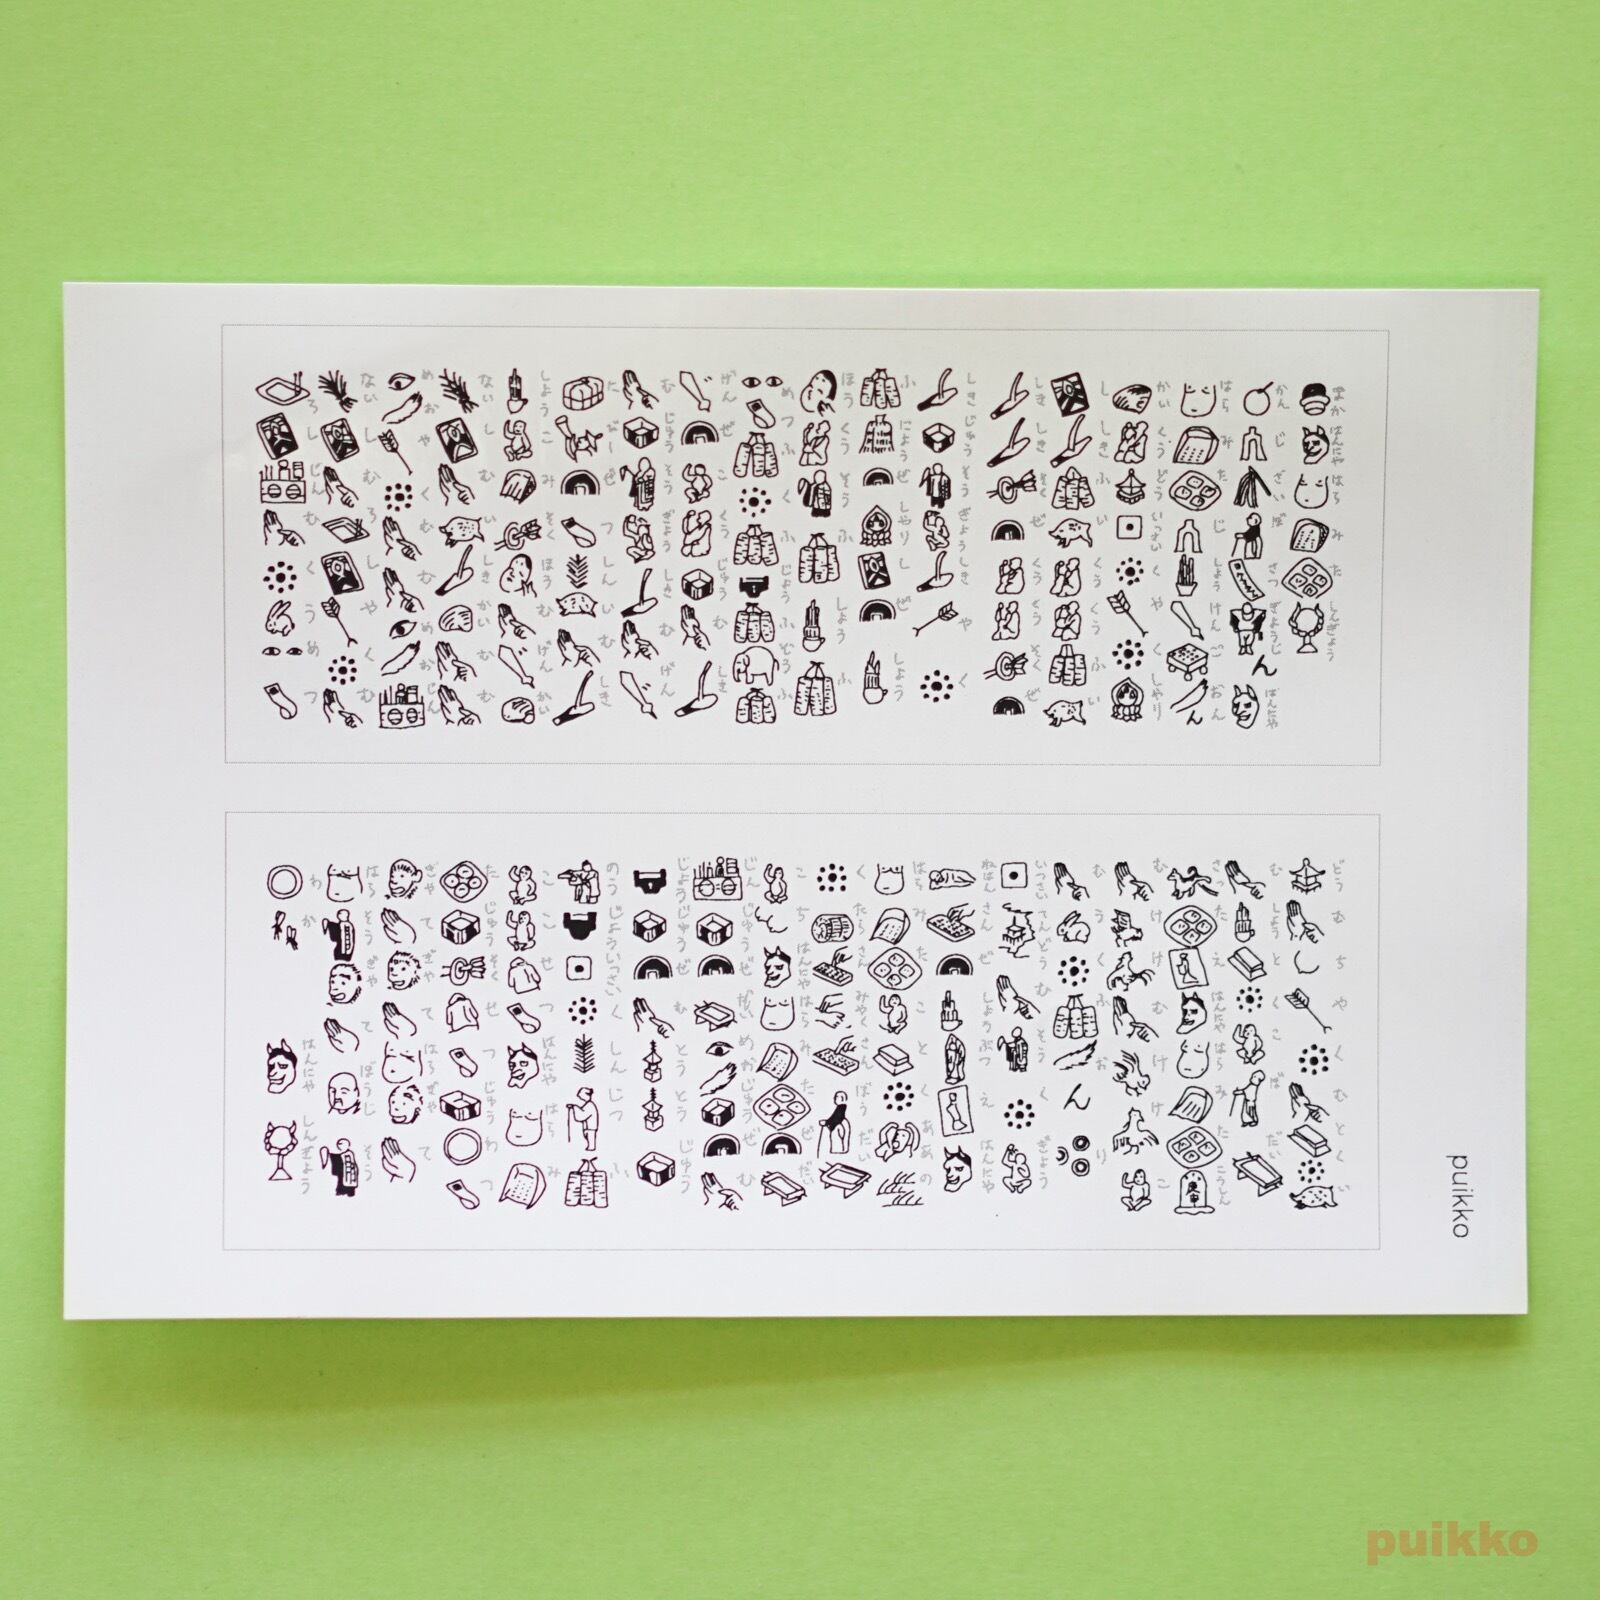 まか はんにや はら み た しんぎょう
かん じ ざい ぼ さつ ぎょうじ ん はんにや
はら み た じ しょう けん ご おん
かい くう どう いっさい く や く しやり
し しき ふ い くう くう ふ い
しき しき そく ぜ くう くう そく ぜ
しき じゅう そう ぎょう しき や く
ふ にょう ぜ しやり し ぜ しょう
ほう くう そう ふ しょう ふ
め つ ふ く ふ じょう ふ ぞう ふ
げん ぜ こ くう じゅう む しき
む じゅう そう ぎょう しき む げん
び ぜ つ しん い む しき
しょう こ み そく ほう む げん かい
ない し む い しき かい む む
め お や く む む め お じん
ない し む ろ し や く む
ろ し じん む く う め つ
どう む ち や く む とく い
む しょ とく こ ぼ だい
さっ た え はんにや はら み た こうしん
む け け む け け こ
む う く ふ お ん り
いっさい てんどう む そう く ぎょう
ねはん さん ぜ しょうぶつ え はんにや
はら み た こ と く ああ の
く たら さん みやく さん ぼう だい
こ ち はんにや はら み た ぜ だい
じん じゅう ぜ だい め お じゅう ぜ む
じょう じゅう ぜ む とう とう じゅう
のう じょう いっさい く しん じつ ふ
こ こ せ つ はんにや はら み
た じゅう そく せ つ じゅう わ つ
ぎゃ て ぎゃ て はら ぎゃ て
はら そう ぎゃ て ぼうじ そう
わ か はんにや しんぎょう
puikko
puikko